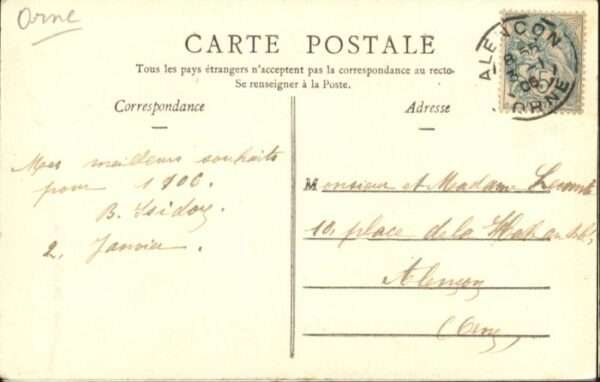 Orne
CARTE POSTALE
Tous les pays étrangers n'acceptent pas la correspondance au recto-
Se renseigner à la Poste.
Correspondance
Adresse
ALENÇON
ORNE
Mes meilleurs souhaits
pour 1906.
B. Isidor
2, Janvier.
Monsieur et Madame
10, place de la Halle au blé,
Alençon
(Orne)